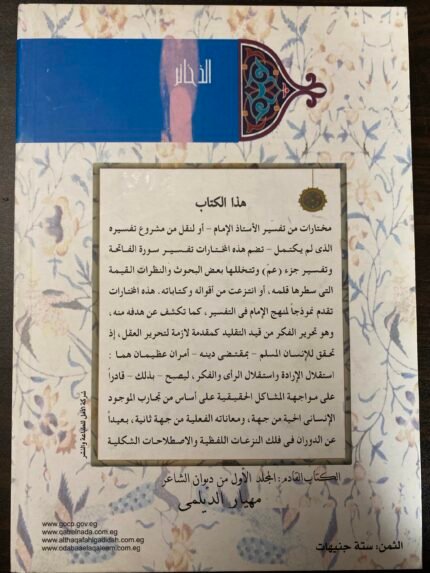 الذخائر
هذا الكتاب
مختارات من تفسير الأستاذ الإمام - أو لنقل من مشروع تفسيره
الذى لم يكتمل - تضم هذه المختارات تفسير سورة الفاتحة
وتفسير جزء (عمّ) وتتخللها بعض البحوث والنظرات القيمة
التى سطرها قلمه، أو انتزعت من أقواله وكتاباته. هذه المختارات
تقدم نموذجاً لمنهج الإمام فى التفسير، كما تكشف عن هدفه منه،
وهو تحرير الفكر من قيد التقليد كمقدمة لازمة لتحرير العقل، إذ
تحقق للإنسان المسلم - بمقتضى دينه - أمران عظيمان هما :
استقلال الإرادة واستقلال الرأى والفكر، ليصبح - بذلك - قادراً
على مواجهة المشاكل الحقيقية على أساس من تجارب الموجود
الإنسانى الحية من جهة، ومعاناته الفعلية من جهة ثانية، بعيداً
عن الدوران فى فلك النزعات اللفظية والاصطلاحات الشكلية
شركة الأمل للطباعة والنشر
الكتاب القادم: المجلد الأول من ديوان الشاعر
مهيار الديلمى
www.gocp.gov.eg
www.qatrelnada.com.eg
www.althaqafahalgadidah.com.eg
www.odabaaelaqaleem.com.eg
الثمن: ستة جنيهات